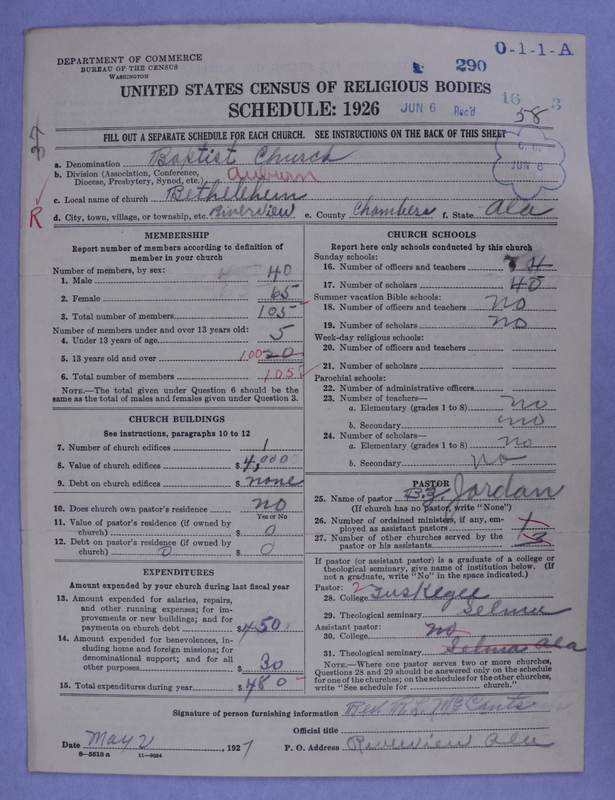 DEPARTMENT OF COMMERCE
BUREAU OF THE CENSUS
WASHINGTON
290
O-1-1-A
UNITED STATES CENSUS OF RELIGIOUS BODIES
SCHEDULE: 1926
JUN 6 Rec'd
16 3
58
FILL OUT A SEPARATE SCHEDULE FOR EACH CHURCH. SEE INSTRUCTIONS ON THE BACK OF THIS SHEET
37
R
JUN 6
a. Denomination Baptist Church
b. Division (Association, Conference, Diocese, Presbytery, Synod, etc.) Auburn
c. Local name of church Bethelehem
d. City, town, village, or township, etc. Riverview e. County Chambers f. State Ala
MEMBERSHIP
Report number of members according to definition of
member in your church
Number of members, by sex:
1. Male 40
2. Female 65
3. Total number of members 105
Number of members under and over 13 years old:
4. Under 13 years of age 5
5. 13 years old and over 100 20
6. Total number of members 105
NOTE.—The total given under Question 6 should be the
same as the total of males and females given under Question 3.
CHURCH BUILDINGS
See instructions, paragraphs 10 to 12
7. Number of church edifices 1
8. Value of church edifices $ 4,000
9. Debt on church edifices $ none
10. Does church own pastor's residence? no
Yes or No
11. Value of pastor's residence (if owned by
church) $ 0
12. Debt on pastor's residence (if owned by
church) 0 $ 0
EXPENDITURES
Amount expended by your church during last fiscal year
13. Amount expended for salaries, repairs,
and other running expenses; for im-
provements or new buildings; and for
payments on church debt $ 450
14. Amount expended for benevolences, in-
cluding home and foreign missions; for
denominational support; and for all
other purposes $ 30
15. Total expenditures during year $ 480
CHURCH SCHOOLS
Report here only schools conducted by this church
Sunday schools:
16. Number of officers and teachers 4
17. Number of scholars 40
Summer vacation Bible schools:
18. Number of officers and teachers no
19. Number of scholars no
Week-day religious schools:
20. Number of officers and teachers
21. Number of scholars
Parochial schools:
22. Number of administrative officers
23. Number of teachers—
a. Elementary (grades 1 to 8) no
b. Secondary no
24. Number of scholars—
a. Elementary (grades 1 to 8) no
b. Secondary no
PASTOR
25. Name of pastor Jordan
(If church has no pastor, write "None")
26. Number of ordained ministers, if any, em-
ployed as assistant pastors 1
27. Number of other churches served by the
pastor or his assistants 3
If pastor (or assistant pastor) is a graduate of a college or
theological seminary, give name of institution below. (If
not a graduate, write "No" in the space indicated.)
Pastor: 2
28. College Tuskegee
29. Theological seminary Selma
Assistant pastor:
30. College no
31. Theological seminary Selma Ala
NOTE.—Where one pastor serves two or more churches,
Questions 28 and 29 should be answered only on the schedule
for one of the churches; on the schedules for the other churches,
write "See schedule for church."
Signature of person furnishing information Rev. M. L. McCants
Official title
Date May 2, 1927 P. O. Address Riverview Ala
8—5518 a 11—9094